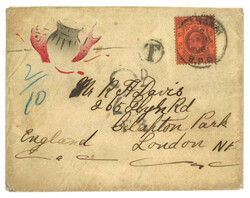 2/10
T
Mr R H Davis
265 Rd
Clapton Park
England
London NE